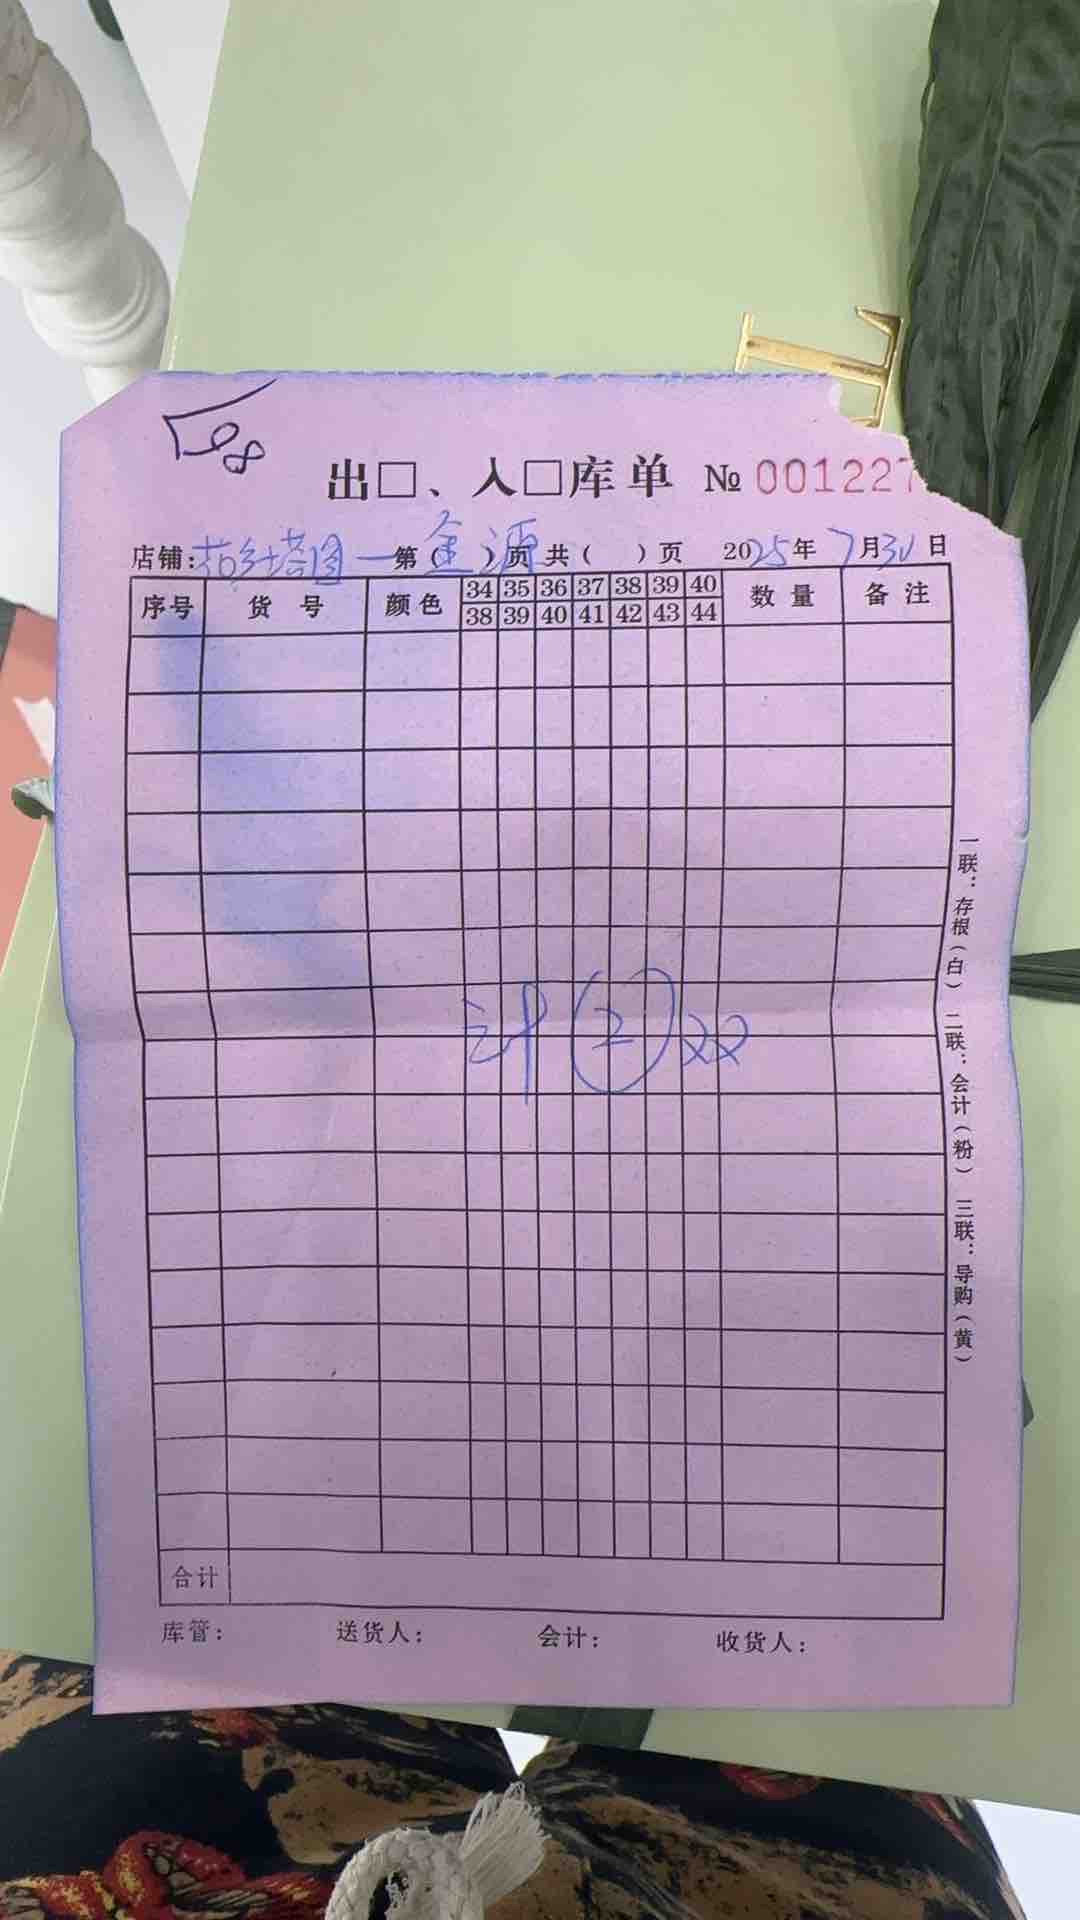 出□、入□库单 № 001227
店铺: 金源 第( )页 共( )页 2025年7月30日
序号 货号 颜色 34 35 36 37 38 39 40 数量 备注
38 39 40 41 42 43 44
计(2)双
合计
库管: 送货人: 会计: 收货人:
一联:存根(白) 二联:会计(粉) 三联:导购(黄)